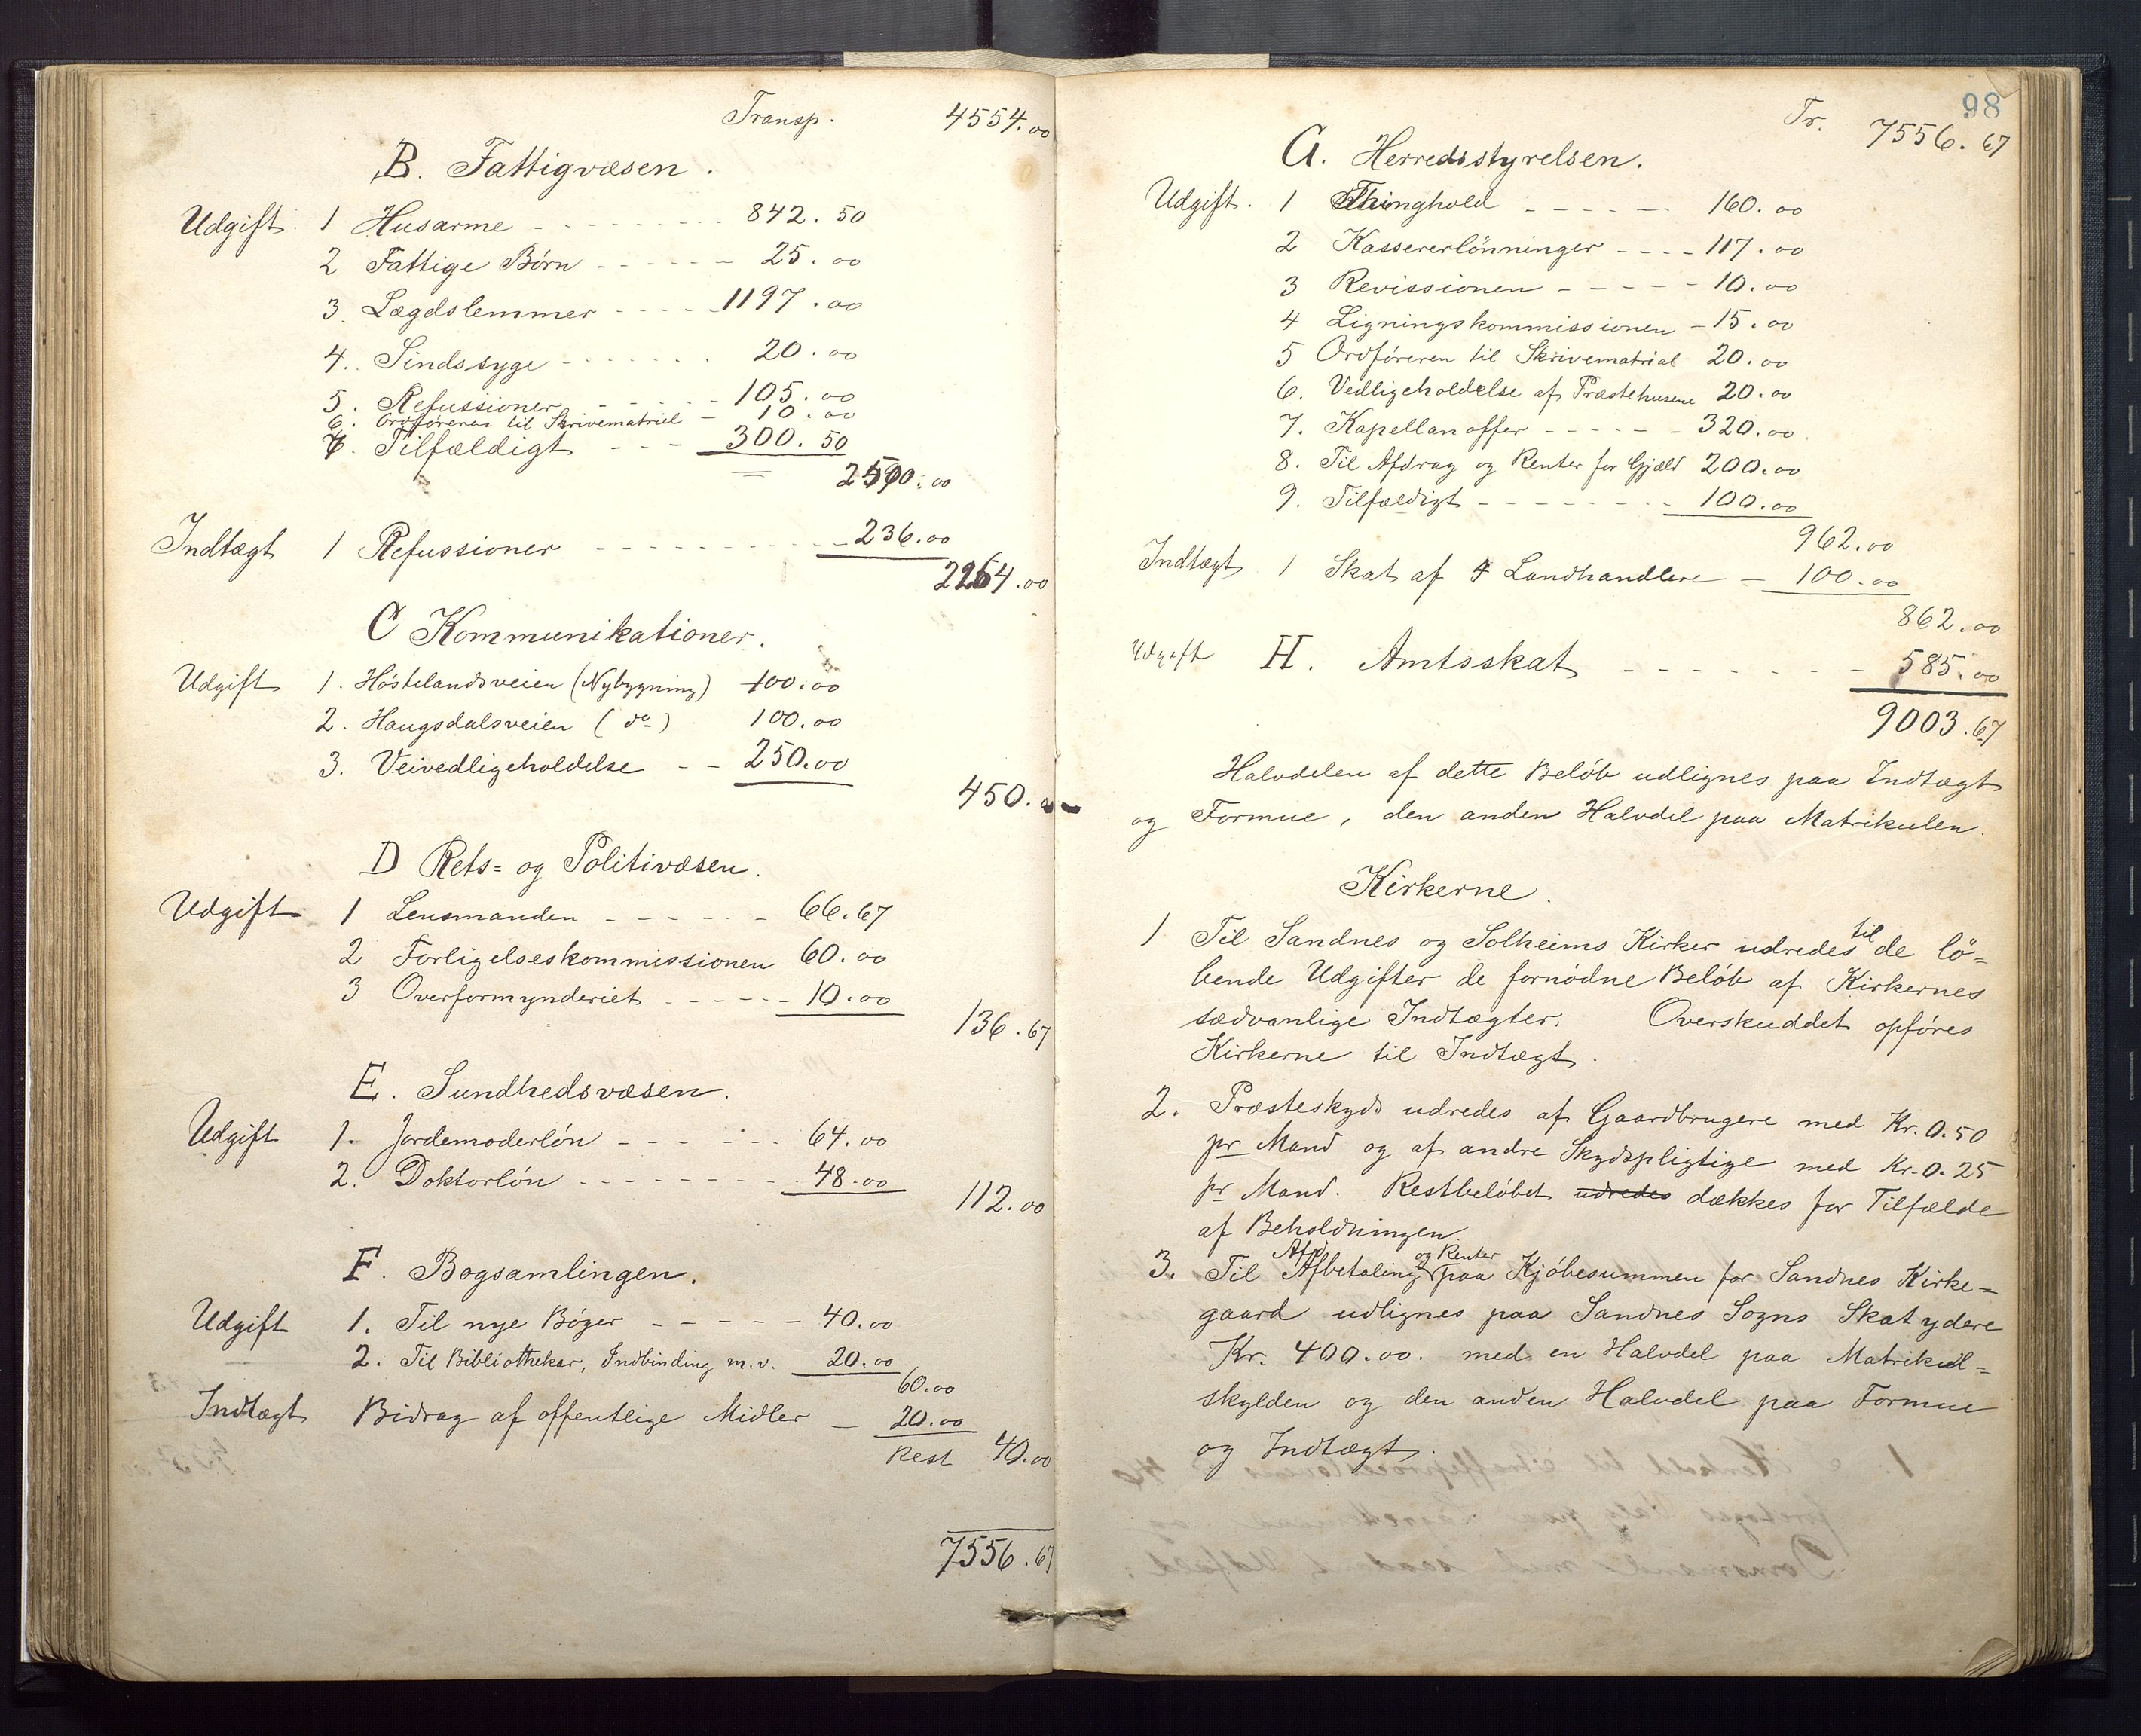 Transp. 4554.00
B. Fattigvæsen.
Udgift. 1 Husarme - - - - - - - 842.50
2 Fattige Børn - - - - - - 25.00
3. Lægdslemmer - - - - - 1197.00
4. Sindssyge - - - - - - - 20.00
5. Refussioner - - - - - 105.00
6. Ordføreren til Skrivematriel - 10.00
7. Tilfældigt - - - 300.50
2500.00
Indtægt 1 Refussioner - - - - - - - - - - - 236.00
2264.00
C Kommunikationer.
Udgift 1. Höstelandsveien (Nybygning) 100.00
2. Haugsdalsveien (do) 100.00
3. Veivedligeholdelse - - 250.00
450.
D Rets= og Politivæsen.
Udgift 1 Lensmanden - - - - - - 66.67
2 Forligelseskommissionen 60.00
3 Overformynderiet - - - - - - 10.00
136.67
E. Sundhedsvæsen.
Udgift 1. Jordemoderlön - - - - - - 64.00
2. Doktorlön - - - - - - - - 48.00
112.00
F. Bogsamlingen.
Udgift 1. Til nye Bøger - - - - - 40.00
2. Til Bibliothekar, Indbinding m.v. 20.00
60.00
Indtægt Bidrag af offentlige Midler - 20.00
Rest 40.00
7556.67
98
Tr. 7556.67
G. Herredsstyrelsen.
Udgift. 1 Thinghold - - - - - 160.00
2 Kassererlönninger - - - - 117.00
3 Revissionen - - - - - 10.00
4 Ligningskommissionen - 15.00
5 Ordföreren til Skrivematrial 20.00
6. Vedligeholdelse af Præstehusene 20.00
7. Kapellanoffer - - - - - - 320.00
8. Til Afdrag og Renter for Gjæld 200.00
9. Tilfældigt - - - - - - - - 100.00
962.00
Indtægt 1 Skat af 4 Landhandlere - 100.00
862.00
Udgift H. Amtsskat - - - - - - - - 585.00
9003.67
Halvdelen af dette Beløb udlignes paa Indtægt
og Formue, den anden Halvdel paa Matrikulen.
Kirkerne.
1 Til Sandnes og Solheims Kirker udredes til de lö=
bende Udgifter de fornödne Belöb af Kirkernes
sædvanlige Indtægter. Overskuddet opföres
Kirkerne til Indtægt.
2. Præsteskyds udredes af Gaardbrugere med Kr. 0.50
pr Mand og af andre Skydspligtige med Kr. 0.25
pr Mand. Restbelöbet udredes dækkes for Tilfælde
af Beholdningen.
3. Til Afbetaling og Renter paa Kjöbesummen for Sandnes Kirke=
gaard udlignes paa Sandnes Sogns Skatydere
Kr. 400.00. med en Halvdel paa Matrikul=
skylden og den anden Halvdel paa Formue
og Indtægt.